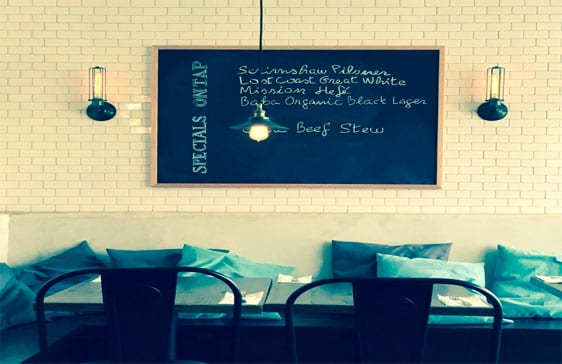 SPECIALS ON TAP
Scrimshaw Pilsner
Lost Coast Great White
Mission Hefé
Baba Organic Black Lager
Beef Stew